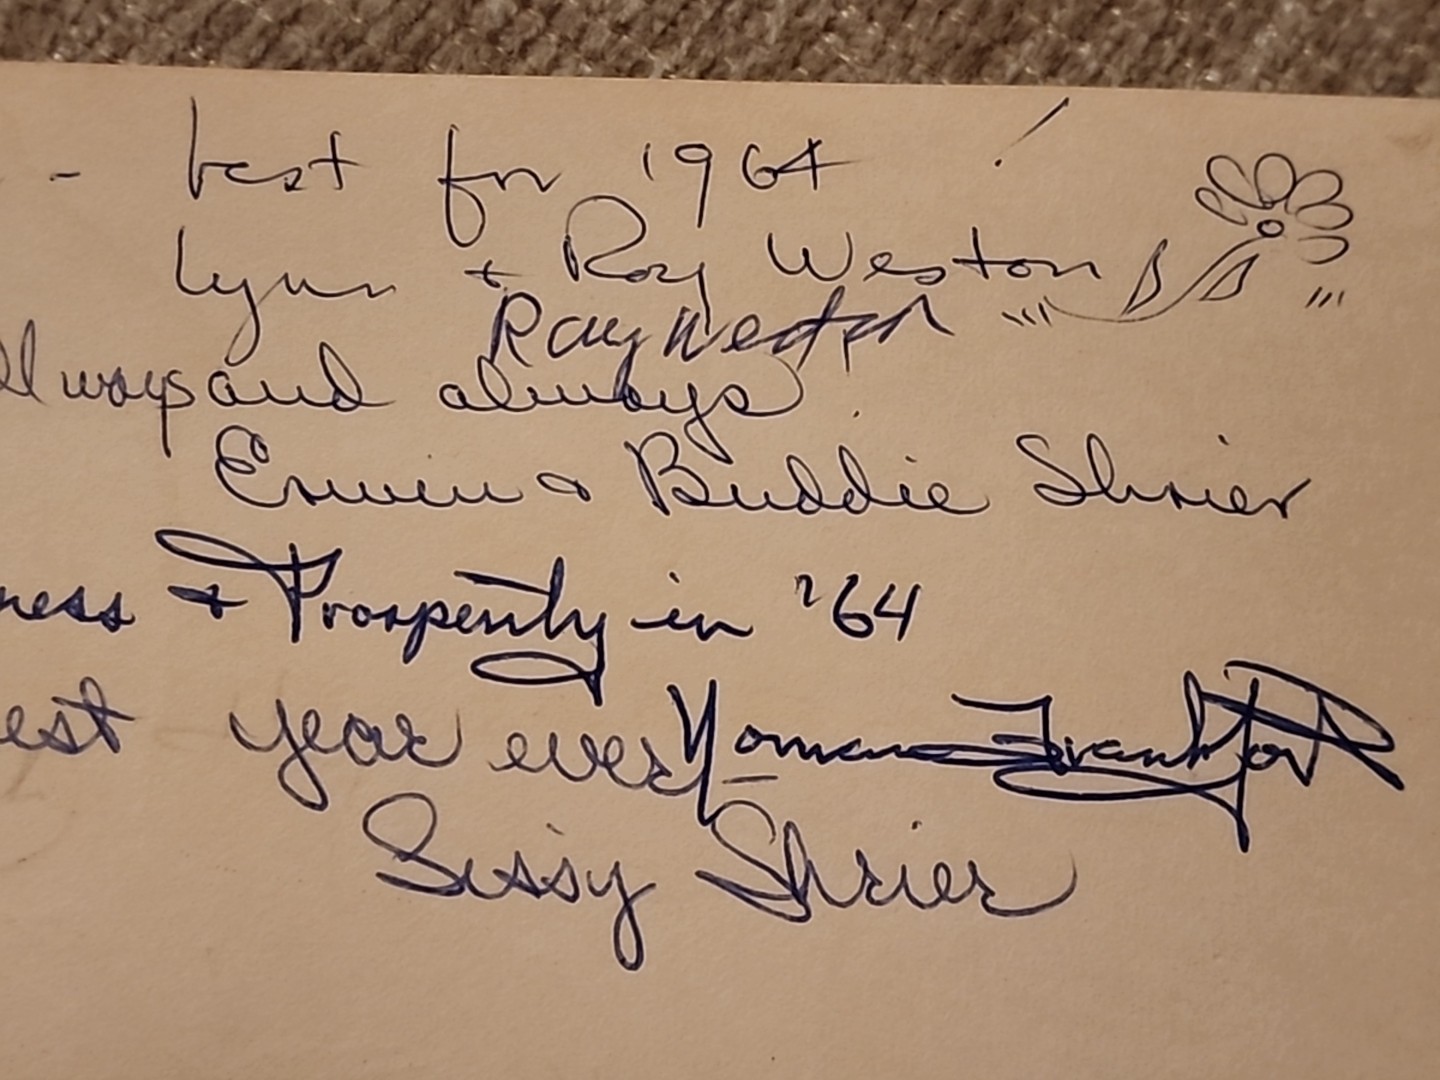 - best for 1964 !
Lynn + Roy Weston
Ray Weston
Always and always.
Erwin & Buddie Shrier
ness + Prosperity in '64
est year ever
Norman Frankfort
Sissy Shrier